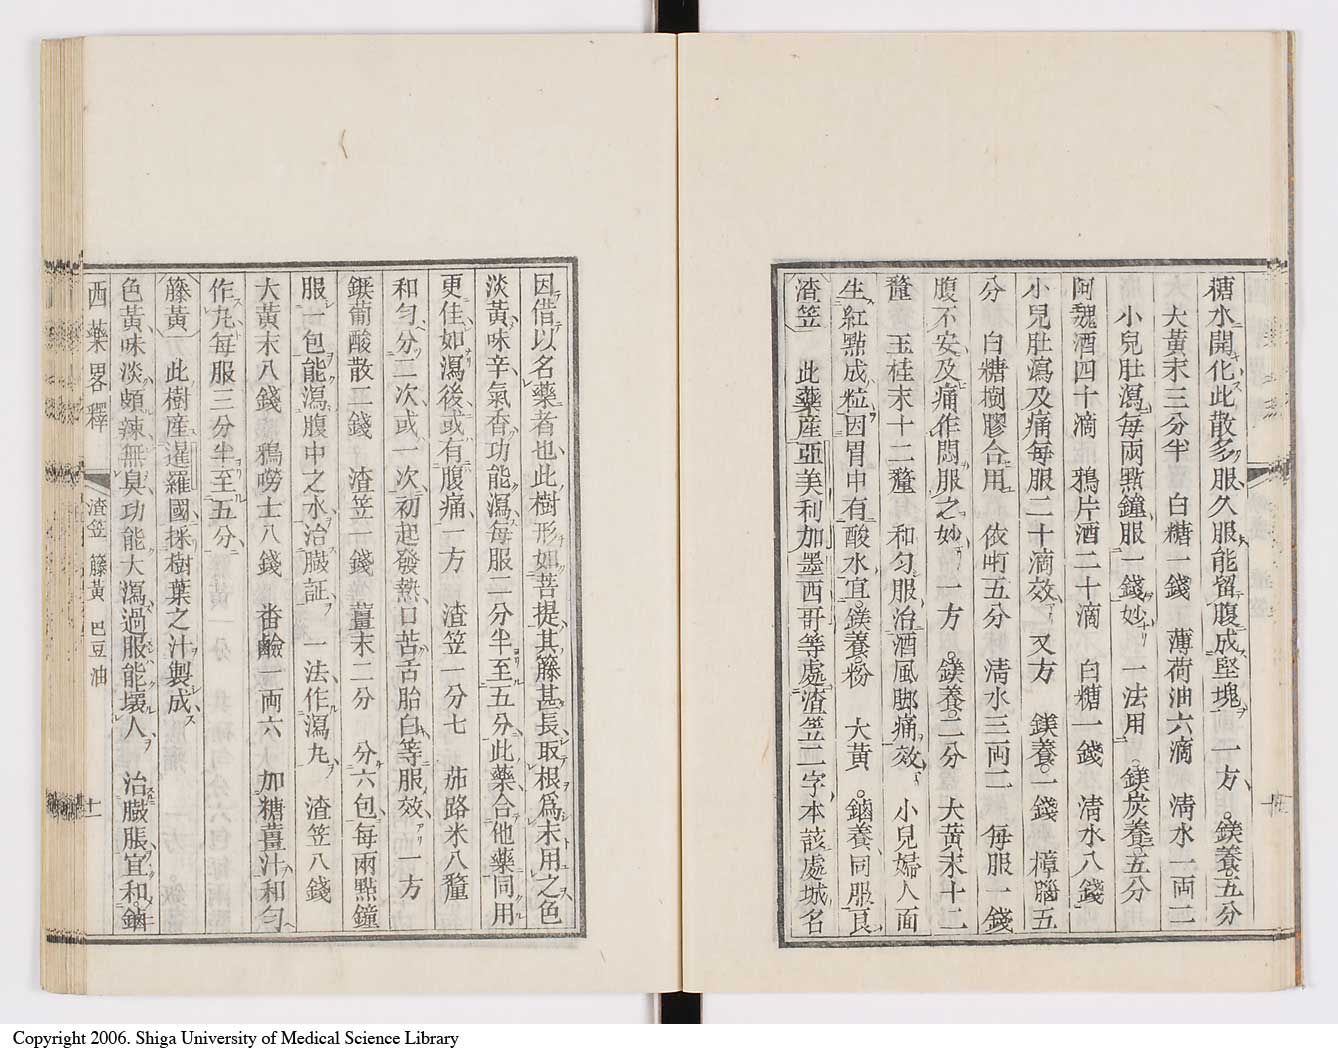 糖水開化此散多服久服能留腹成堅塊　一方　鎂養五分
大黃末三分半　白糖一錢　薄荷油六滴　清水一両二
小兒肚瀉每兩點鐘服一錢妙　一法用　鎂炭養五分
阿魏酒四十滴　鴉片酒二十滴　白糖一錢　清水八錢
小兒肚瀉及痛每服二十滴效　又方　鎂養一錢　樟腦五
分　白糖樹膠合用　依𠯈五分　清水三両二　每服一錢
腹不安及痛作悶服之妙　一方　鎂養二分　大黃末十二
釐　玉桂末十二釐　和勻服治酒風脚痛效　小兒婦人面
生紅點成粒因胃中有酸水宜鎂養粉　大黃　鏀養同服良
渣笠　此藥産亞美利加墨西哥等處渣笠二字本該處城名
因借以名藥者也此樹形如菩提其籐甚長取根爲末用之色
淡黃味辛氣香功能瀉每服二分半至五分此藥合他藥同用
更佳如瀉後或有腹痛一方　渣笠一分七　茄路米八釐
和勻分二次或一次初起發熱口苦舌胎白等服效一方
鏀葡酸散二錢　渣笠一錢　薑末二分　分六包每兩點鐘
服一包能瀉腹中之水治臌証　一法作瀉丸　渣笠八錢
大黃末八錢　鴉嘮士八錢　番鹼一両六　加糖薑汁和勻
作丸每服三分半至五分
籐黃　此樹産暹羅國採樹葉之汁製成
色黃味淡頗辣無臭功能大瀉過服能壞人　治臌脹宜和鏀
西藥畧釋　渣笠　籐黃　巴豆油　十一
Copyright 2006. Shiga University of Medical Science Library